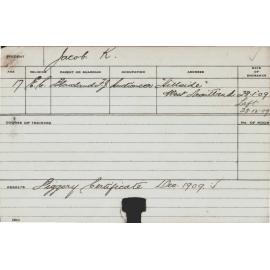 STUDENT Jacob K.
AGE RELIGION PARENT OR GUARDIAN OCCUPATION ADDRESS DATE OF ENTRANCE
17 Auctioneer "Hillside"
West 09
Left
COURSE OF TRAINING No. OF HOURS
RESULTS Piggery Certificate Dec 1909.